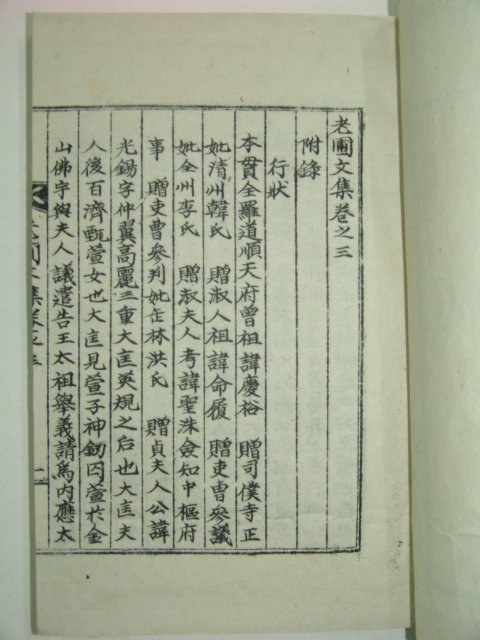 老圃文集卷之三
附錄
行狀
本貫全羅道順天府曾祖諱慶裕　贈司僕寺正
妣清州韓氏　贈淑人祖諱命履　贈吏曹參議
妣全州李氏　贈淑夫人考諱聖洙僉知中樞府
事　贈吏曹參判妣缶林洪氏　贈貞夫人公諱
光錫字仲翼高麗三重大匡英規之后也大匡夫
人後百濟甄萱女也大匡見萱子神釰囚萱於金
山佛宇與夫人議遣告王太祖舉義請爲內應太
老圃文集卷之三
一